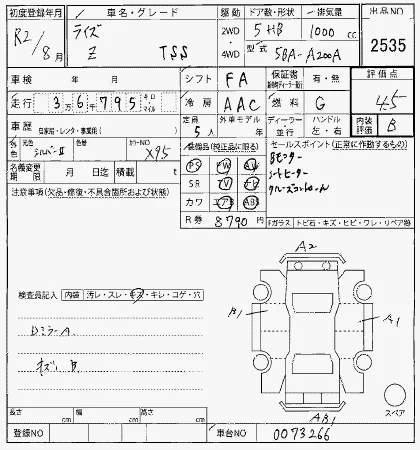 初度登録年月 車名・グレード 駆動 ドア数・形状 排気量 出品NO
R2/8月 ライズ 2WD 5 HB 1000 cc 2535
Z TSS 4WD 型式 5BA-A200A
車検 年 月 シフト FA 保証書 有・無 評価点
走行 3万6千795 キロ マイル 冷房 AAC 燃料 G 4.5
車歴 自家用・レンタ・事業用( ) 定員 5人 外車モデル年 ディーラー 並行 ハンドル 左・右 内装評価 B
色 元色 シルバーII 色替 カラーNO X95 装備品(純正品に限る) セールスポイント(正常に作動するもの)
名義変更期限 月 日迄 積載 t PS PW AW Bモニター
注意事項(欠品・修復・不具合箇所および状態) SR ナビ シートヒーター
カワ エアB ABS クルーズコントロール
R券 8790円 Fガラス トビ石・キズ・ヒビ・ワレ・リペア跡
A2
検査員記入 内装 汚レ・スレ・キズ・キレ・コゲ・穴
A1 A1
DミラーA
キズ B
スペア
AB1
長さ cm 幅 cm 高さ cm
登録NO 車台NO 0073266